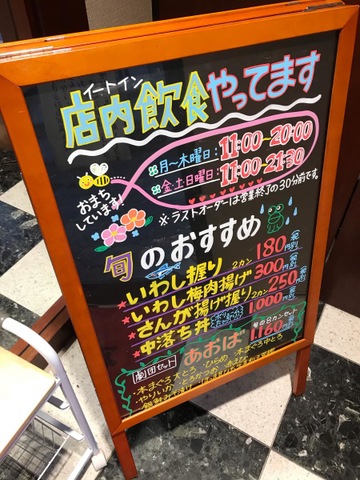 イートイン
店内飲食やってます
月〜木曜日：11:00〜20:00
金.土日曜日：11:00〜21:30
おまちしています!
※ラストオーダーは営業終了の30分前です。
旬のおすすめ
★いわし握り 2カン 180円
★いわし梅肉揚げ 300円
★さんが揚げ握り 2カン 250円
★中落ち丼 1000円
あおば
1,160円
・本まぐろ大とろ ・ひらめ ・本まぐろ中とろ
・やりいか